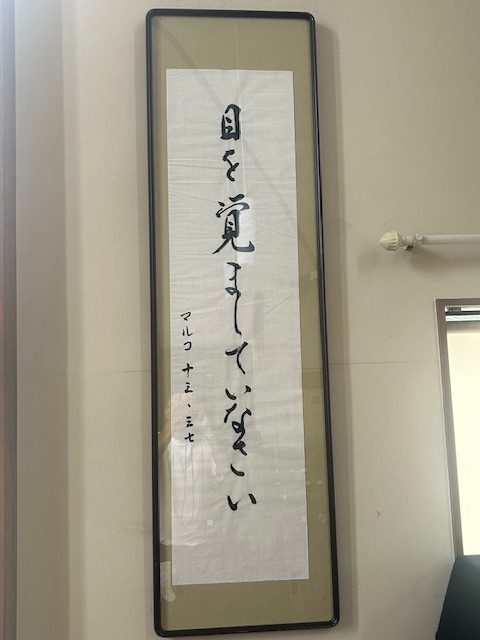 目を覚ましていなさい
マルコ 十三、三七